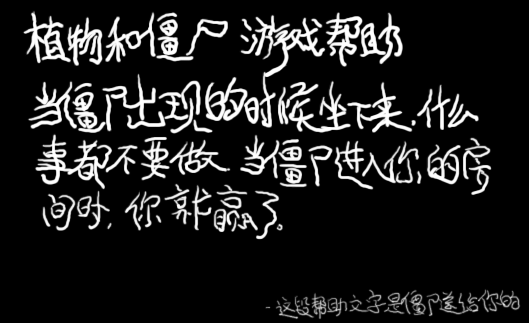 植物和僵尸 游戏帮助
当僵尸出现的时候坐下来.什么
事都不要做 当僵尸进入你的房
间时,你就赢了。
-这段帮助文字是僵尸送给你的